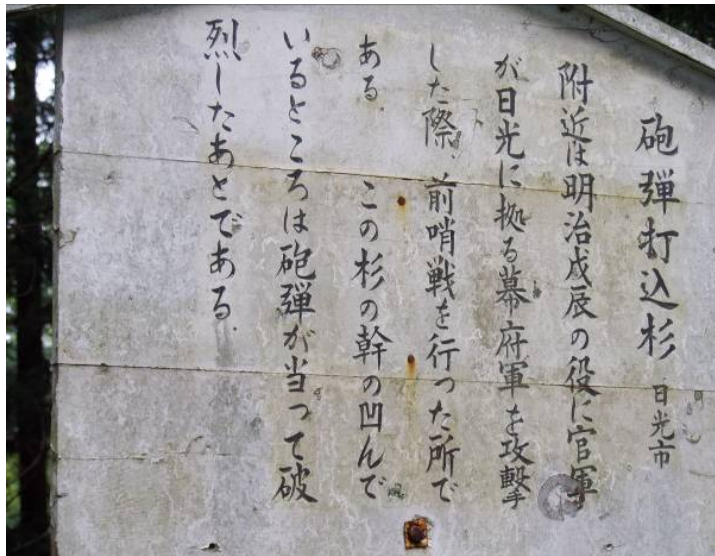 砲弾打込杉 日光市
附近は明治戊辰の役に官軍
が日光に拠る幕府軍を攻撃
した際、前哨戦を行った所で
ある この杉の幹の凹んで
いるところは砲弾が当って破
烈したあとである.